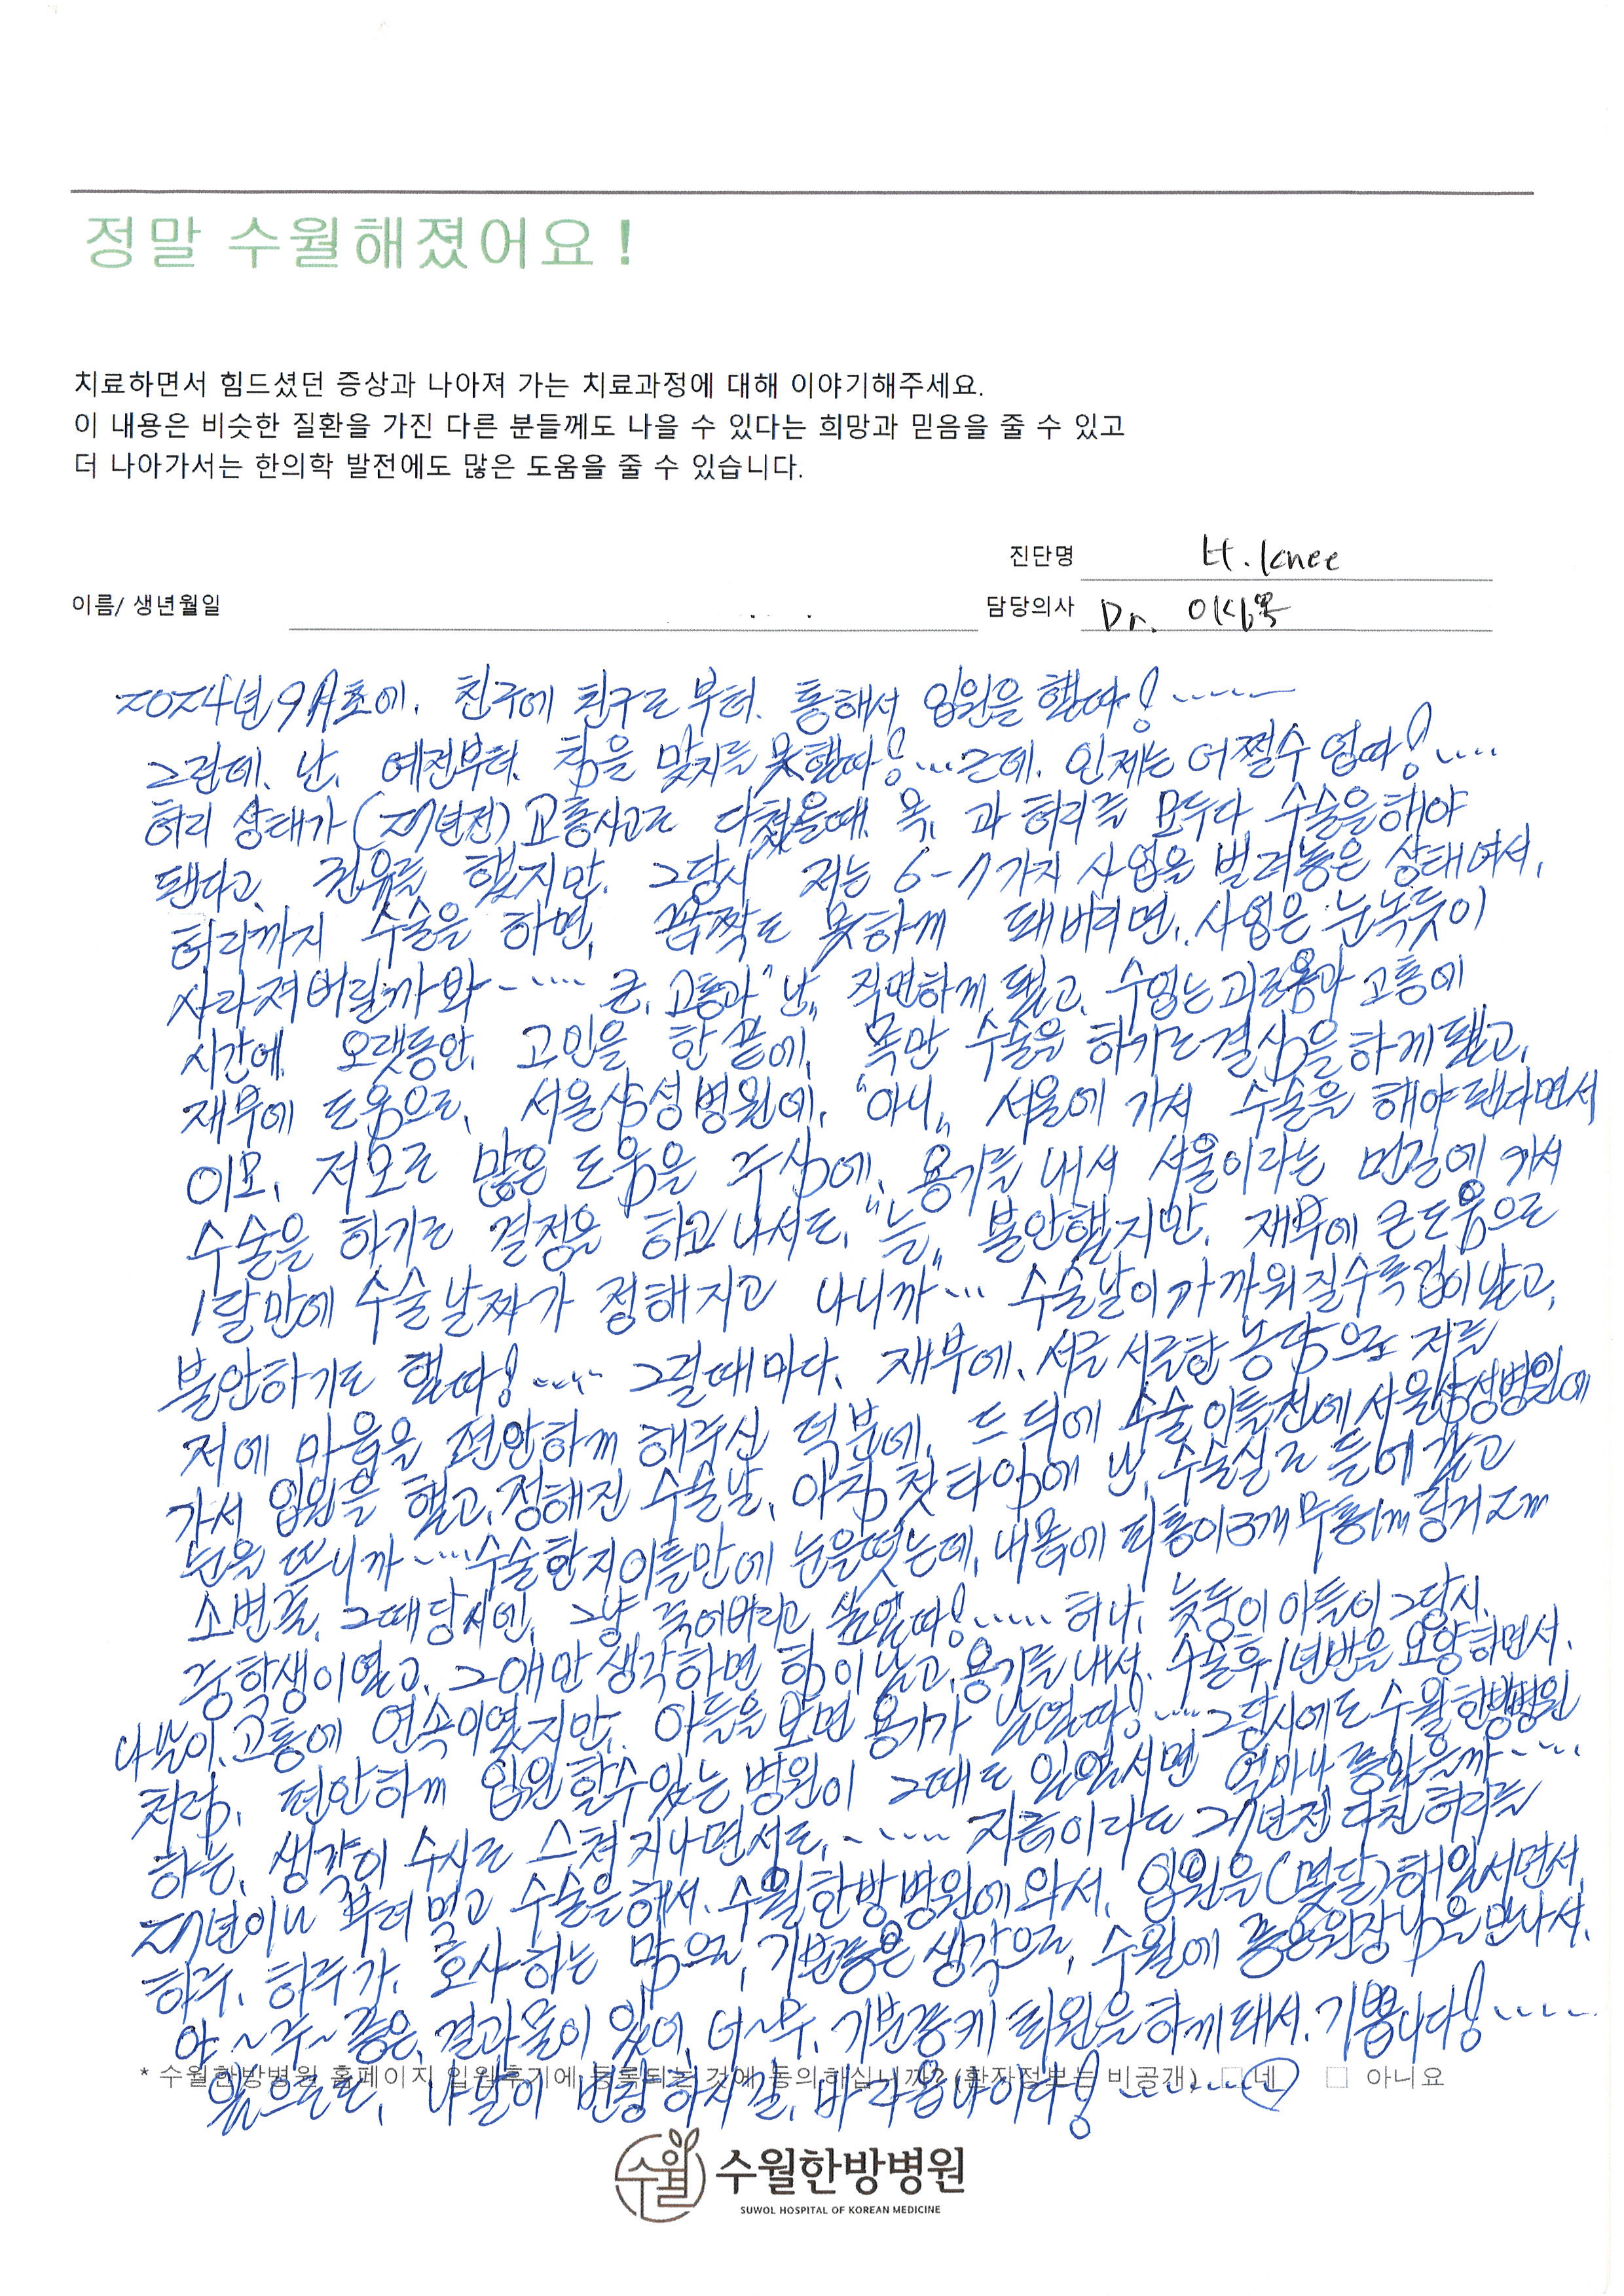 정말 수월해졌어요!
치료하면서 힘드셨던 증상과 나아져 가는 치료과정에 대해 이야기해주세요.
이 내용은 비슷한 질환을 가진 다른 분들께도 나을 수 있다는 희망과 믿음을 줄 수 있고
더 나아가서는 한의학 발전에도 많은 도움을 줄 수 있습니다.
진단명 Lt. knee
이름/ 생년월일 . . 담당의사 Dr.
2024년 9月초에. 친구에 친구로 부터. 통해서 입원을 했따! ......
그런데. 난. 예전부터. 침을 맞지를 못했따! ... 근데. 인제는 어쩔수 업따! ....
허리 상태가 (27년전) 교통사고로 다쳤을때. 목, 과 허리를 모두다 수술을 해야
됀다고. 권유를 했지만. 그당시 저는 6-7가지 사업을 벌려놓은 상태여서,
허리까지 수술을 하면, 꼼짝도 못하게 돼버리면. 사업은 눈녹듯이
사라져버릴까봐 ..... 큰. 고통과 "난" 직면하게 됐고. 수업는 괴로움과 고통에
시간에. 오랫동안. 고민을 한 끝에, 목만 수술을 하기로 결심을 하게됐고,
재부에 도움으로, 서울삼성병원에. "아니" 서울에 가서 수술을 해야됀다면서
이모, 저모로 많은 도움을 주심에, 용기를 내서 서울이라는 먼길에 가서
수술을 하기로 결정은 하고 나서도, "늘" 불안했지만. 재부에 큰도움으로
1달만에 수술 날짜가 정해지고 나니까 ... 수술날이 가까워질수록 겁이났고,
불안하기도 했따! ..... 그럴때마다. 재부에. 서글서글한 농담으로 저를
저에 마음을 편안하께 해주신 덕분에, 드뎌에 수술 이틀전에 서울삼성병원에
가서 입원을 했고, 정해진 수술날, 아침 첫 타임에 난, 수술실로 들에갔고
눈을 뜨니까 ..... 수술한지 이틀만에 눈을떳는데, 내 목에 피통이 3개
소변줄, 그때당시엔, 그냥 죽어버리고 싶었따! ...... 허나, 늦둥이 아들이 그당시.
중학생이였고, 그애만 생각하면 힘이 났고, 용기를 내서. 수술후 1년반을 요양하면서.
나날이, 고통에 연속이였지만, 아들을 보면 용기가 났었따! ..... 그당시에도 수월한방병원
처럼, 편안하께 입원할수있는 병원이 그때도 있었서면 얼마나 좋았을까 .....
하는, 생각이 수시로 스쳐 지나면서도, ...... 지금이라도 27년전 다친허리를
27년이나 부려 먹고 수술을해서. 수월한방병원에 와서, 입원을 (몇달)해있서면서,
하루, 하루가, 호사하는 맘으로, 기분좋은 생각으로, 수월에 좋은원장님을 만나서.
아~주~ 좋은, 결과물이 있어, 너~무, 기분좋케 퇴원을 하께돼서. 기쁩니다! .....
* 수월한방병원 홈페이지 입원후기에 등록되는 것에 동의하십니까? (환자정보는 비공개) □ 네 □ 아니요
앞으로도, 나날이 번창하시길, 바라옵나이다! ......
수월 수월한방병원
SUWOL HOSPITAL OF KOREAN MEDICINE